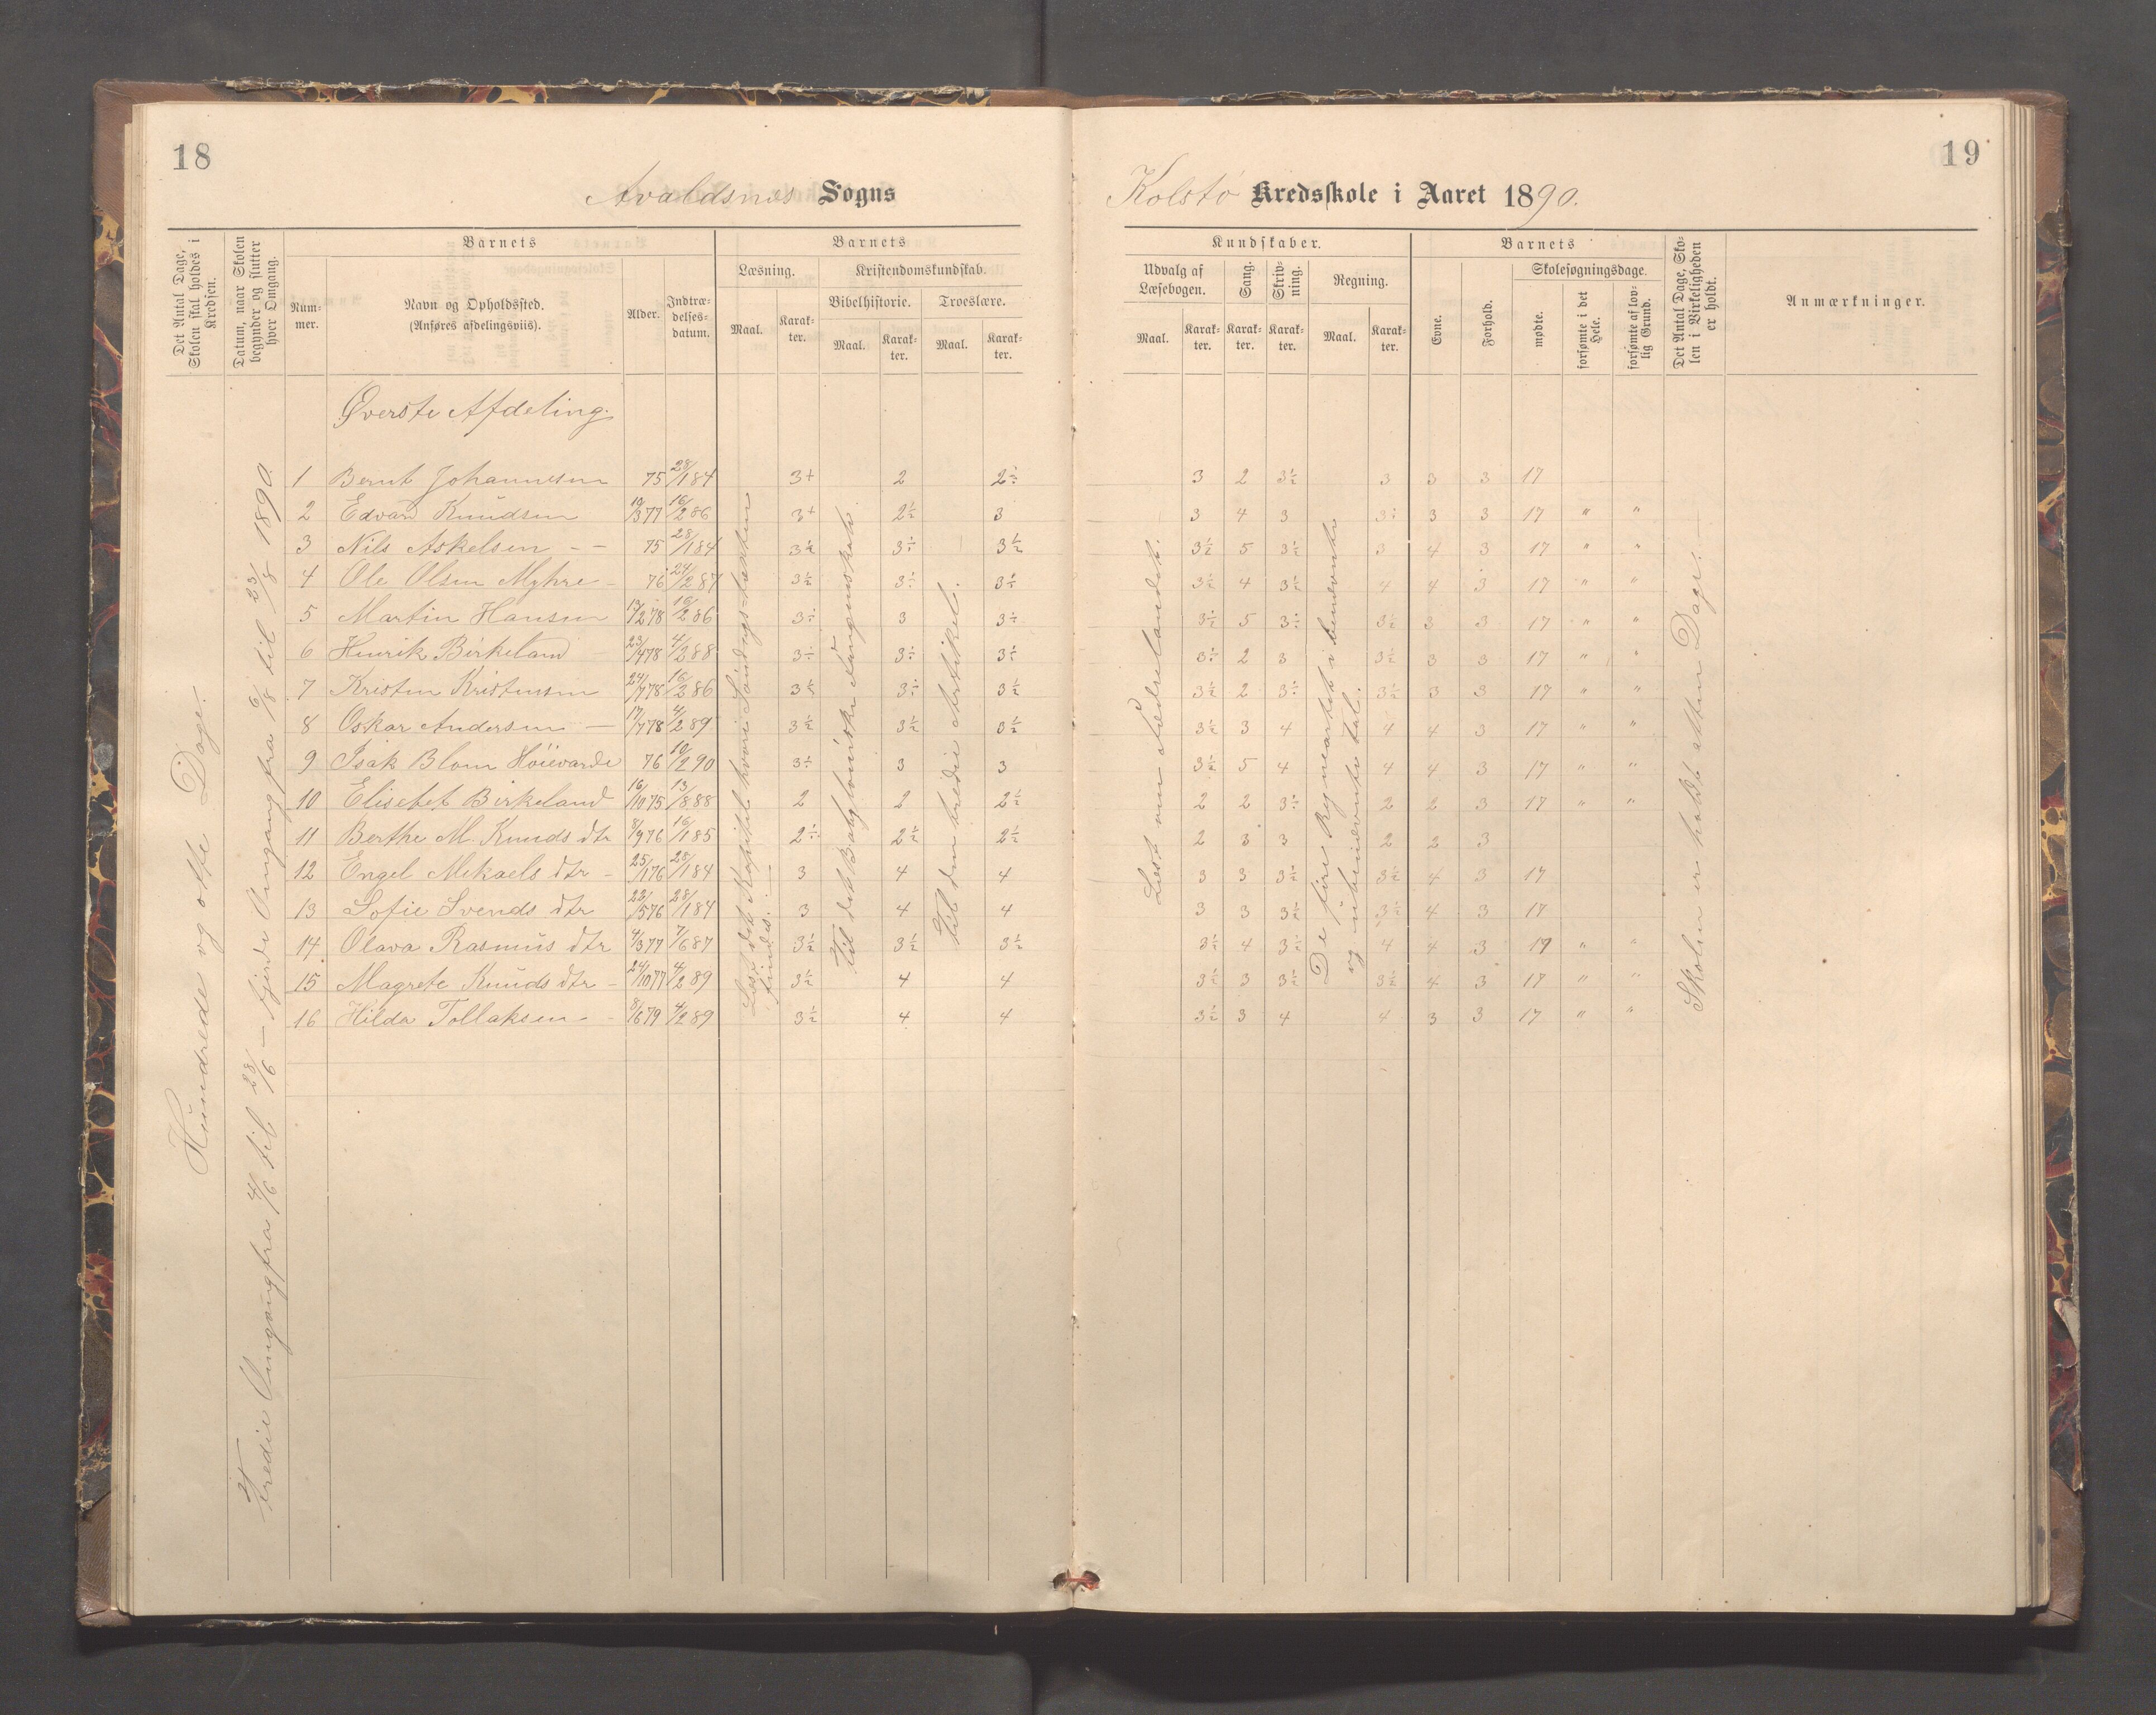 18
Avaldsnes Sogns
Det Antal Dage, Skolen skal holdes i Kredsen.
Datum, naar Skolen begynder og slutter hver Omgang.
Barnets
Nummer.
Navn og Opholdssted.
(Anføres afdelingsviis).
Alder.
Indtrædelsesdatum.
Barnets
Læsning.
Maal.
Karakter.
Kristendomskundskab.
Bibelhistorie.
Maal.
Karakter.
Troeslære.
Maal.
Karakter.
Hundrede og otte Dage.
Tredie Omgang fra 4/6 til 23/6 — fjerde Omgang fra 6/8 til 23/8 1890.
Øverste Afdeling.
1 Bernt Johannesen 75 28/1 84 3+ 2 2÷
2 Edvard Knudsen 19/3 77 16/2 86 3+ 2½ 3
3 Nils Askelsen - - 75 28/1 84 3½ 3÷ 3½
4 Ole Olsen Myhre - 76 24/2 87 3½ 3÷ 3÷
5 Martin Hansen 19/2 78 16/2 86 3÷ 3 3÷
6 Henrik Birkeland 23/4 78 4/2 88 3÷ 3÷ 3÷
7 Kristen Kristensen 24/7 78 16/2 86 3½ 3÷ 3½
8 Oskar Andersen - 17/7 78 4/2 89 3½ 3½ 3½
9 Isak Blom Höievarde 76 10/2 90 3÷ 3 3
10 Elisebet Birkeland 16/10 75 13/8 88 2 2 2½
11 Berthe M. Knuds dtr 8/9 76 16/1 85 2÷ 2½ 2½
12 Engel Mikaels dtr - 25/1 76 28/1 84 3 4 4
13 Sofie Svends dtr 23/5 76 28/1 84 3 4 4
14 Olava Rasmus dtr 4/3 77 7/6 87 3½ 3½ 3½
15 Magrete Knuds dtr - 24/10 77 4/2 89 3½ 4 4
16 Hilda Tollaksen - - 8/6 79 4/2 89 3½ 4 4
Til det Babyloniske Fangenskab.
Til den tredie Artikel.
19
Kolstø Kredsskole i Aaret 1890.
Kundskaber.
Udvalg af Læsebogen.
Maal.
Karakter.
Sang.
Karakter.
Skrivning.
Karakter.
Regning.
Maal.
Karakter.
Barnets
Evne.
Forhold.
Skolesøgningsdage.
mødte.
forsømte i det Hele.
forsømte af lovlig Grund.
Det Antal Dage, Skolen i Virkeligheden er holdt.
Anmærkninger.
3 2 3½ 3 3 3 17
3 4 3 3÷ 3 3 17 " "
3½ 5 3½ 3 4 3 17 " "
3½ 4 3÷ 4 4 3 17 " "
3½ 5 3÷ 3½ 3 3 17 " "
3÷ 2 3 3½ 3 3 17 " "
3½ 2 3÷ 3½ 3 3 17 " "
3½ 3 4 4 4 3 17 " "
3½ 5 4 4 4 3 17 " "
2 2 3÷ 2 2 3 17 " "
2 3 3 2 2 3
3 3 3½ 3½ 4 3 17
3 3 3½ 3½ 4 3 17
3½ 4 3½ 4 4 3 17 " "
3½ 3 3½ 3½ 4 3 17 " "
3½ 3 4 4 3 3 17 " "
Læst om Fædrelandet.
De fire Regnearter i benævnte
og ubenævnte tal.
Skolen er holdt atten Dage.